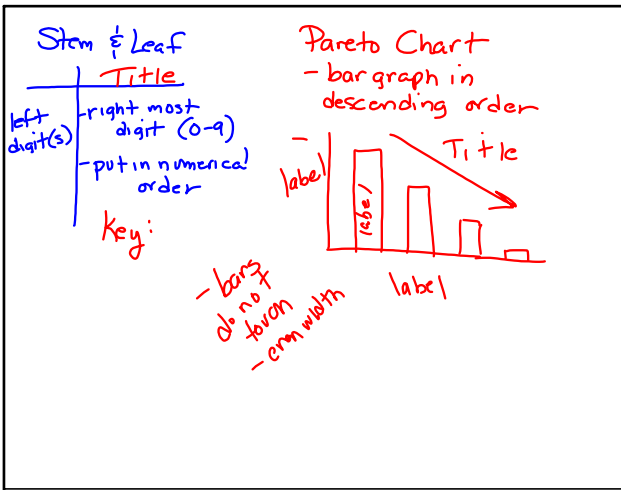 Stem & Leaf
Title
left
digit(s)
-right most
digit (0-9)
-put in numerical
order
Key:
Pareto Chart
- bar graph in
descending order
label
label
Title
label
- bars
do not
touch
- even width